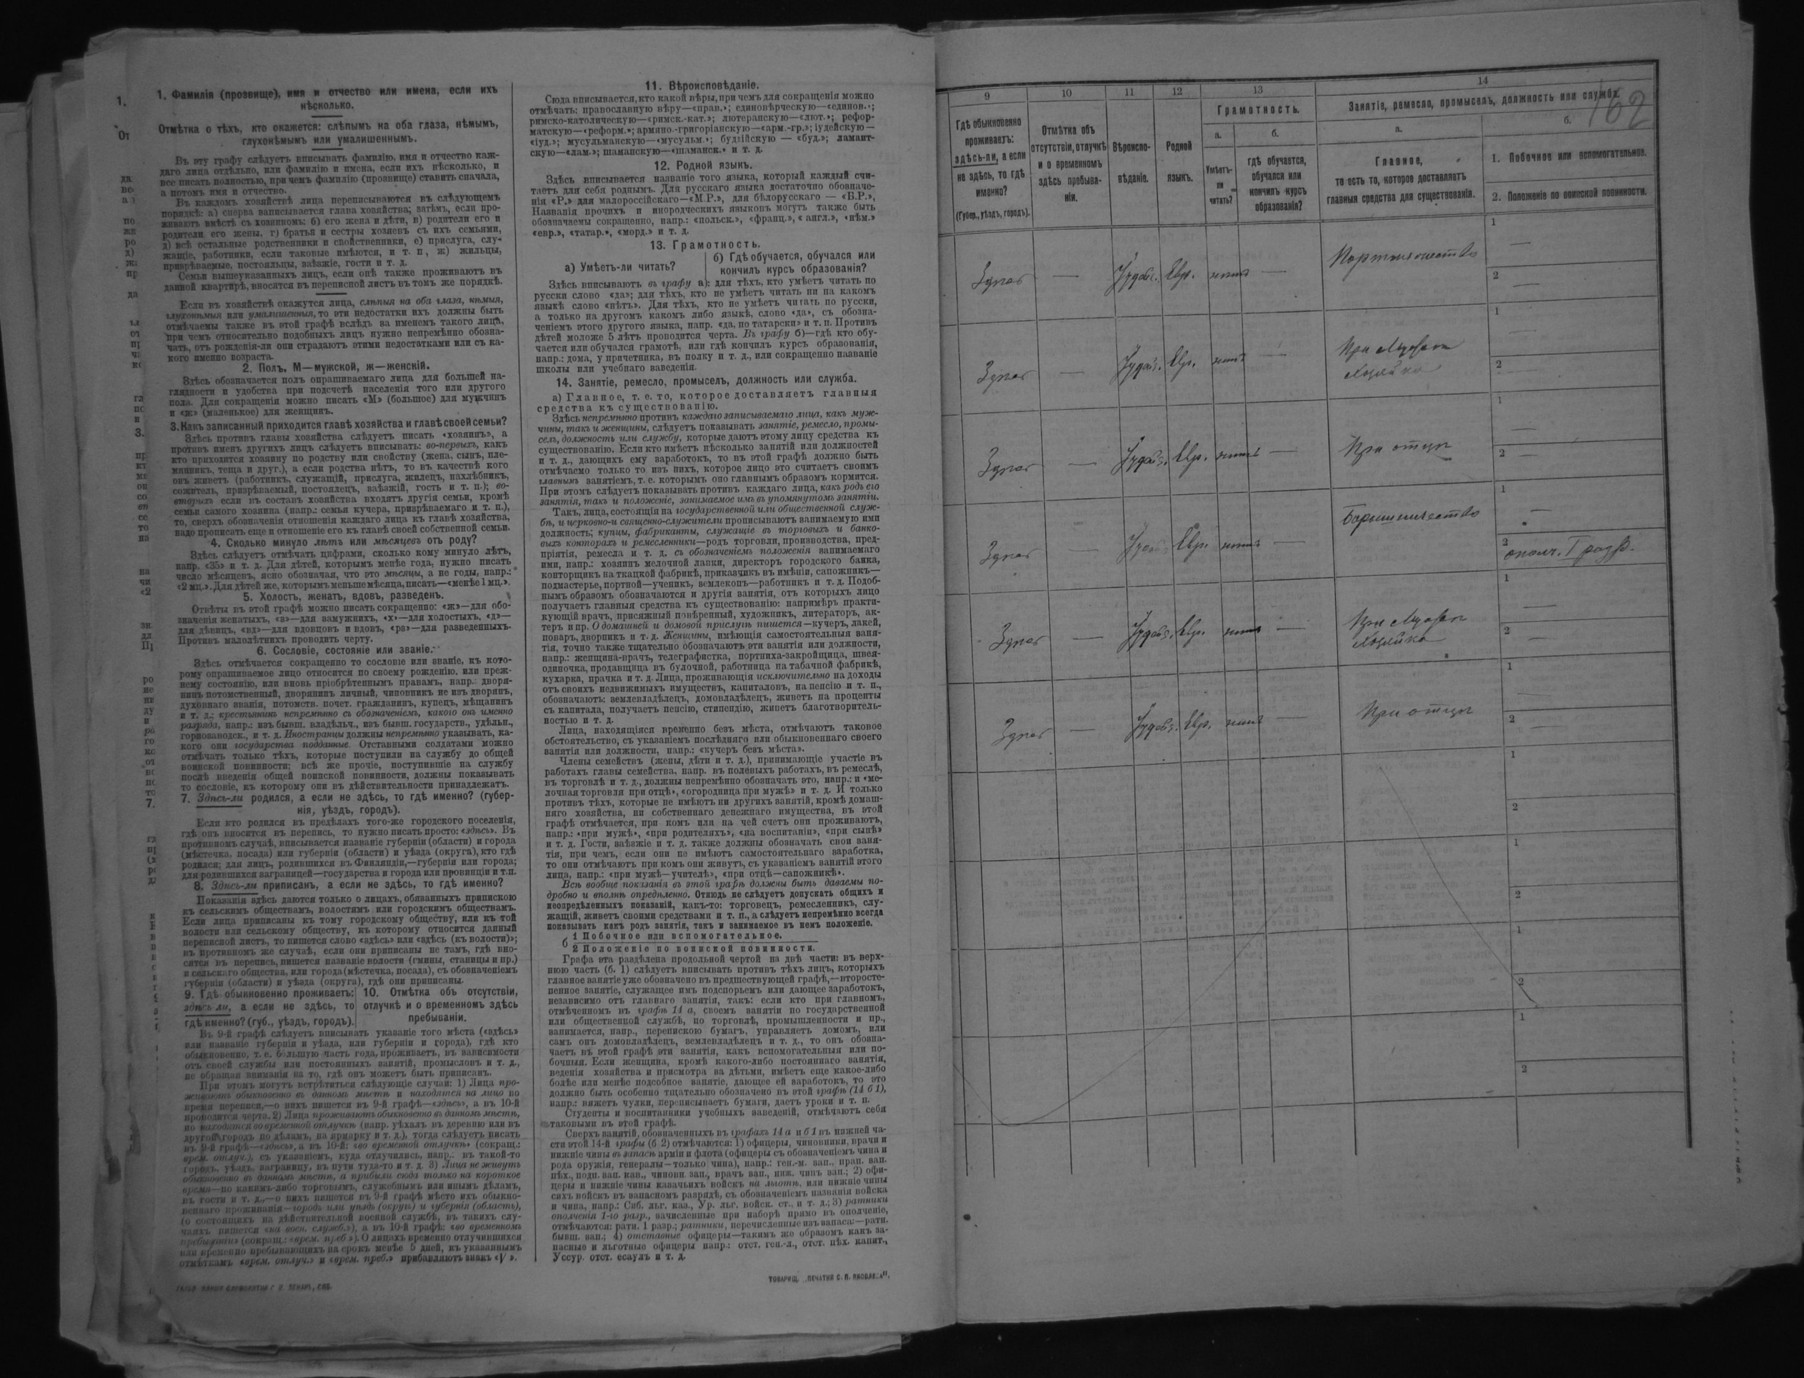 1. Фамилія (прозвище), имя и отчество или имена, если ихъ
нѣсколько.
Отмѣтка о тѣхъ, кто окажется: слѣпымъ на оба глаза, нѣмымъ,
глухонѣмымъ или умалишеннымъ.
Въ эту графу слѣдуетъ вписывать фамилію, имя и отчество каж-
даго лица отдѣльно, или фамилію и имена, если ихъ нѣсколько, и
все писать полностью, при чемъ фамилію (прозвище) ставить сначала,
а потомъ имя и отчество.
Въ каждомъ хозяйствѣ лица переписываются въ слѣдующемъ
порядкѣ: а) сперва записывается глава хозяйства; затѣмъ, если про-
живаютъ вмѣстѣ съ хозяиномъ: б) его жена и дѣти, в) родители его и
родители его жены, г) братья и сестры хозяевъ съ ихъ семьями,
д) всѣ остальные родственники и свойственники, е) прислуга, слу-
жащіе, работники, если таковые имѣются, и т. п., ж) жильцы,
призрѣваемые, постояльцы, заѣзжіе, гости и т. д.
Семьи вышеуказанныхъ лицъ, если онѣ также проживаютъ въ
данной квартирѣ, вносятся въ переписной листъ въ томъ же порядкѣ.
Если въ хозяйствѣ окажутся лица, слѣпыя на оба глаза, нѣмыя,
глухонѣмыя или умалишенныя, то эти недостатки ихъ должны быть
отмѣчаемы также въ этой графѣ вслѣдъ за именемъ такого лица,
при чемъ относительно подобныхъ лицъ нужно непремѣнно обозна-
чать, отъ рожденія-ли они страдаютъ этими недостатками или съ ка-
кого именно возраста.
2. Полъ. М—мужской, ж—женскій.
Здѣсь обозначается полъ опрашиваемаго лица для большей на-
глядности и удобства при подсчетѣ населенія того или другого
пола. Для сокращенія можно писать «М» (большое) для мужчинъ
и «ж» (маленькое) для женщинъ.
3. Какъ записанный приходится главѣ хозяйства и главѣ своей семьи?
Здѣсь противъ главы хозяйства слѣдуетъ писать «хозяинъ», а
противъ именъ другихъ лицъ слѣдуетъ вписывать: во-первыхъ, какъ
кто приходится хозяину по родству или свойству (жена, сынъ, пле-
мянникъ, теща и друг.), а если родства нѣтъ, то въ качествѣ кого
онъ живетъ (работникъ, служащій, прислуга, жилецъ, нахлѣбникъ,
сожитель, призрѣваемый, постоялецъ, заѣзжій, гость и т. п.); во-
вторыхъ если въ составъ хозяйства входятъ другія семьи, кромѣ
семьи самого хозяина (напр.: семья кучера, призрѣваемаго и т. п.),
то, сверхъ обозначенія отношенія каждаго лица къ главѣ хозяйства,
надо прописать еще и отношеніе его къ главѣ своей собственной семьи.
4. Сколько минуло лѣтъ или мѣсяцевъ отъ роду?
Здѣсь слѣдуетъ отмѣчать цифрами, сколько кому минуло лѣтъ,
напр. «35» и т. д. Для дѣтей, которымъ менѣе года, нужно писать
число мѣсяцевъ, ясно обозначая, что это мѣсяцы, а не годы, напр.:
«2 мц.». Для дѣтей же, которымъ меньше мѣсяца, писать—«менѣе 1 мц.».
5. Холостъ, женатъ, вдовъ, разведенъ.
Отвѣты въ этой графѣ можно писать сокращенно: «ж»—для обо-
значенія женатыхъ, «з»—для замужнихъ, «х»—для холостыхъ, «д»—
для дѣвицъ, «вд»—для вдовцовъ и вдовъ, «рз»—для разведенныхъ.
Противъ малолѣтнихъ проводить черту.
6. Сословіе, состояніе или званіе.
Здѣсь отмѣчается сокращенно то сословіе или званіе, къ кото-
рому опрашиваемое лицо относится по своему рожденію, или преж-
нему состоянію, или вновь пріобрѣтеннымъ правамъ, напр. дворя-
нинъ потомственный, дворянинъ личный, чиновникъ не изъ дворянъ,
духовнаго званія, потомств. почет. гражданинъ, купецъ, мѣщанинъ
и т. д.; крестьянинъ непремѣнно съ обозначеніемъ, какого онъ именно
разряда, напр.: изъ бывш. владѣльч., изъ бывш. государств., удѣльн.,
горнозаводск., и т. д. Иностранцы должны непремѣнно указывать, ка-
кого они государства подданные. Отставными солдатами можно
отмѣчать только тѣхъ, которые поступили на службу до общей
воинской повинности; всѣ же прочіе, поступившіе на службу
послѣ введенія общей воинской повинности, должны показывать
то сословіе, къ которому они въ дѣйствительности принадлежатъ.
7. Здѣсь-ли родился, а если не здѣсь, то гдѣ именно? (губер-
нія, уѣздъ, городъ).
Если кто родился въ предѣлахъ того-же городского поселенія,
гдѣ онъ вносится въ перепись, то нужно писать просто: «здѣсь». Въ
противномъ случаѣ, вписывается названіе губерніи (области) и города
(мѣстечка, посада) или губерніи (области) и уѣзда (округа), кто гдѣ
родился; для лицъ, родившихся въ Финляндіи,—губернія или города;
для родившихся заграницей—государства и города или провинціи и т.п.
8. Здѣсь-ли приписанъ, а если не здѣсь, то гдѣ именно?
Показанія здѣсь даются только о лицахъ, обязанныхъ припискою
къ сельскимъ обществамъ, волостямъ или городскимъ обществамъ.
Если лица приписаны къ тому городскому обществу, или къ той
волости или сельскому обществу, къ которому относится данный
переписной листъ, то пишется слово «здѣсь» или «здѣсь (къ волости)»;
въ противномъ же случаѣ, если они приписаны не тамъ, гдѣ вно-
сятся въ перепись, пишется названіе волости (гмины, станицы и пр.)
и сельскаго общества, или города (мѣстечка, посада), съ обозначеніемъ
губерніи (области) и уѣзда (округа), гдѣ они приписаны.
9. Гдѣ обыкновенно проживаетъ:
здѣсь ли, а если не здѣсь, то
гдѣ именно? (губ., уѣздъ, городъ).
10. Отмѣтка объ отсутствіи,
отлучкѣ и о временномъ здѣсь
пребываніи.
Въ 9-й графѣ слѣдуетъ вписывать указаніе того мѣста («здѣсь»
или названіе губерніи и уѣзда, или губерніи и города), гдѣ кто
обыкновенно, т. е. большую часть года, проживаетъ, въ зависимости
отъ своей службы или постоянныхъ занятій, промысловъ и т. д.,
не обращая вниманія на то, гдѣ онъ можетъ быть приписанъ.
При этомъ могутъ встрѣтиться слѣдующіе случаи: 1) Лица про-
живаютъ обыкновенно въ данномъ мѣстѣ и находятся на лицо во
время переписи,—о нихъ пишется въ 9-й графѣ—«здѣсь», а въ 10-й
проводится черта. 2) Лица проживаютъ обыкновенно въ данномъ мѣстѣ,
но находятся во временной отлучкѣ (напр. уѣхалъ въ деревню или въ
другой городъ по дѣламъ, на ярмарку и т. д.), тогда слѣдуетъ писать
въ 9-й графѣ—«здѣсь», а въ 10-й: «во временной отлучкѣ» (сокращ.:
врем. отлуч.), съ указаніемъ, куда отлучились, напр.: въ такой-то
городъ, уѣздъ, заграницу, въ пути туда-то и т. д. 3) Лица не живутъ
обыкновенно въ данномъ мѣстѣ, а прибыли сюда только на короткое
время—по какимъ-либо торговымъ, служебнымъ или инымъ дѣламъ,
въ гости и т. д.,—о нихъ пишется въ 9-й графѣ мѣсто ихъ обыкно-
веннаго проживанія—городъ или уѣздъ (округъ) и губернія (область),
(о состоящихъ на дѣйствительной военной службѣ, въ такихъ слу-
чаяхъ пишется «на воен. службѣ»), а въ 10-й графѣ: «во временномъ
пребываніи» (сокращ.: «врем. преб.»). О лицахъ временно отлучившихся
или временно пребывающихъ на срокъ менѣе 5 дней, къ указаннымъ
отмѣткамъ «врем. отлуч.» и «врем. преб.» прибавляютъ знакъ «V».
11. Вѣроисповѣданіе.
Сюда вписывается, кто какой вѣры, при чемъ для сокращенія можно
отмѣчать: православную вѣру—«прав.»; единовѣрческую—«единов.»;
римско-католическую—«римск.-кат.»; лютеранскую—«лют.»; рефор-
матскую—«реформ.»; армяно-григоріанскую—«арм.-гр.»; іудейскую—
«іуд.»; мусульманскую—«мусульм.»; буддійскую — «буд.»; ламаит-
скую—«лам.»; шаманскую—«шаманск.» и т. д.
12. Родной языкъ.
Здѣсь вписывается названіе того языка, который каждый счи-
таетъ для себя роднымъ. Для русскаго языка достаточно обозначе-
нія «Р.» для малороссійскаго—«М.Р.», для бѣлорусскаго — «Б.Р.»,
Названія прочихъ и инородческихъ языковъ могутъ также быть
обозначаемы сокращенно, напр.: «польск.», «франц.», «англ.», «нѣм.»
«евр.», «татар.», «морд.» и т. д.
13. Грамотность.
а) Умѣетъ-ли читать?
б) Гдѣ обучается, обучался или
кончилъ курсъ образованія?
Здѣсь вписываютъ въ графу а): для тѣхъ, кто умѣетъ читать по
русски слово «да»; для тѣхъ, кто не умѣетъ читать ни на какомъ
языкѣ слово «нѣтъ». Для тѣхъ, кто не умѣетъ читать по русски,
а только на другомъ какомъ либо языкѣ, слово «да», съ обозна-
ченіемъ этого другого языка, напр. «да, по татарски» и т. п. Противъ
дѣтей моложе 5 лѣтъ проводится черта. Въ графу б)—гдѣ кто обу-
чается или обучался грамотѣ, или гдѣ кончилъ курсъ образованія,
напр.: дома, у причетника, въ полку и т. д., или сокращенно названіе
школы или учебнаго заведенія.
14. Занятіе, ремесло, промыселъ, должность или служба.
а) Главное, т. е. то, которое доставляетъ главныя
средства къ существованію.
Здѣсь непремѣнно противъ каждаго записываемаго лица, какъ муж-
чины, такъ и женщины, слѣдуетъ показывать занятіе, ремесло, промы-
селъ, должность или службу, которые даютъ этому лицу средства къ
существованію. Если кто имѣетъ нѣсколько занятій или должностей
и т. д., дающихъ ему заработокъ, то въ этой графѣ должно быть
отмѣчаемо только то изъ нихъ, которое лицо это считаетъ своимъ
главнымъ занятіемъ, т. е. которымъ оно главнымъ образомъ кормится.
При этомъ слѣдуетъ показывать противъ каждаго лица, какъ родъ его
занятія, такъ и положеніе, занимаемое имъ въ упомянутомъ занятіи.
Такъ, лица, состоящія на государственной или общественной служ-
бѣ, и церковно-и священно-служители прописываютъ занимаемую ими
должность; купцы, фабриканты, служащіе въ торговыхъ и банко-
выхъ конторахъ и ремесленники—родъ торговли, производства, пред-
пріятія, ремесла и т. д. съ обозначеніемъ положенія занимаемаго
ими, напр.: хозяинъ мелочной лавки, директоръ городского банка,
конторщикъ на ткацкой фабрикѣ, приказчикъ въ имѣніи, сапожникъ—
подмастерье, портной—ученикъ, землекопъ—работникъ и т. д. Подоб-
нымъ образомъ обозначаются и другія занятія, отъ которыхъ лицо
получаетъ главныя средства къ существованію: напримѣръ практи-
кующій врачъ, присяжный повѣренный, художникъ, литераторъ, ак-
теръ и пр. О домашней и домовой прислугѣ пишется—кучеръ, лакей,
поваръ, дворникъ и т. д. Женщины, имѣющія самостоятельныя заня-
тія, точно также тщательно обозначаютъ эти занятія или должности,
напр.: женщина-врачъ, телеграфистка, портниха-закройщица, швея-
одиночка, продавщица въ булочной, работница на табачной фабрикѣ,
кухарка, прачка и т. д. Лица, проживающія исключительно на доходы
отъ своихъ недвижимыхъ имуществъ, капиталовъ, на пенсію и т. п.,
обозначаютъ: землевладѣлецъ, домовладѣлецъ, живетъ на проценты
съ капитала, получаетъ пенсію, стипендію, живетъ благотворитель-
ностью и т. д.
Лица, находящіяся временно безъ мѣста, отмѣчаютъ таковое
обстоятельство, съ указаніемъ послѣдняго или обыкновеннаго своего
занятія или должности, напр.: «кучеръ безъ мѣста».
Члены семействъ (жены, дѣти и т. д.), принимающіе участіе въ
работахъ главы семейства, напр. въ полевыхъ работахъ, въ ремеслѣ,
въ торговлѣ и т. д., должны непремѣнно обозначать это, напр.: и «ме-
лочная торговля при отцѣ», «огородница при мужѣ» и т. д. И только
противъ тѣхъ, которые не имѣютъ ни другихъ занятій, кромѣ домаш-
няго хозяйства, ни собственнаго денежнаго имущества, въ этой
графѣ отмѣчается, при комъ или на чей счетъ они проживаютъ,
напр.: «при мужѣ», «при родителяхъ», «на воспитаніи», «при сынѣ»
и т. д. Гости, заѣзжіе и т. д. также должны обозначать свои заня-
тія, при чемъ, если они не имѣютъ самостоятельнаго заработка,
то они отмѣчаютъ при комъ они живутъ, съ указаніемъ занятій этого
лица, напр.: «при мужѣ—учителѣ», «при отцѣ—сапожникѣ».
Всѣ вообще показанія въ этой графѣ должны быть даваемы по-
дробно и вполнѣ опредѣленно. Отнюдь не слѣдуетъ допускать общихъ и
неопредѣленныхъ показаній, какъ-то: торговецъ, ремесленникъ, слу-
жащій, живетъ своими средствами и т. п., а слѣдуетъ непремѣнно всегда
показывать какъ родъ занятія, такъ и занимаемое въ немъ положеніе.
б
1 Побочное или вспомогательное.
2 Положеніе по воинской повинности.
Графа эта раздѣлена продольной чертой на двѣ части: въ верх-
нюю часть (б. 1) слѣдуетъ вписывать противъ тѣхъ лицъ, которыхъ
главное занятіе уже обозначено въ предшествующей графѣ,—второсте-
пенное занятіе, служащее имъ подспорьемъ или дающее заработокъ,
независимо отъ главнаго занятія, такъ: если кто при главномъ,
отмѣченномъ въ графѣ 14 а, своемъ занятіи по государственной
или общественной службѣ, по торговлѣ, промышленности и пр.,
занимается, напр., перепискою бумагъ, управляетъ домомъ, или
самъ онъ домовладѣлецъ, землевладѣлецъ и т. д., то онъ обозна-
чаетъ въ этой графѣ эти занятія, какъ вспомогательныя или по-
бочныя. Если женщина, кромѣ какого-либо постояннаго занятія,
веденія хозяйства и присмотра за дѣтьми, имѣетъ еще какое-либо
болѣе или менѣе подсобное занятіе, дающее ей заработокъ, то это
должно быть особенно тщательно обозначено въ этой графѣ (14 б 1),
напр.: вяжетъ чулки, переписываетъ бумаги, даетъ уроки и т. п.
Студенты и воспитанники учебныхъ заведеній, отмѣчаютъ себя
таковыми въ этой графѣ.
Сверхъ занятій, обозначенныхъ въ графахъ 14 а и б 1 въ нижней ча-
сти этой 14-й графы (б 2) отмѣчаются: 1) офицеры, чиновники, врачи и
нижніе чины въ запасѣ арміи и флота (офицеры съ обозначеніемъ чина и
рода оружія, генералы—только чина), напр.: ген.-м. зап., прап. зап.
пѣх., подп. зап. кав., чиновн. зап., врачъ зап., ниж. чинъ зап.; 2) офи-
церы и нижніе чины казачьихъ войскъ на льготѣ, или нижніе чины
сихъ войскъ въ запасномъ разрядѣ, съ обозначеніемъ названія войска
и чина, напр.: Сиб. льг. каз., Ур. льг. войск. ст., и т. д.; 3) ратники
ополченія 1-го разр., зачисленные при наборѣ прямо въ ополченіе,
отмѣчаются: ратн. 1 разр.; ратники, перечисленные изъ запаса:—ратн.
бывш. зап.; 4) отставные офицеры—такимъ же образомъ какъ за-
пасные и льготные офицеры напр.: отст. ген.-л., отст. пѣх. капит.,
Уссур. отст. есаулъ и т. д.
162
9 10 11 12 13 14
Гдѣ обыкновенно
проживаетъ:
здѣсь-ли, а если
не здѣсь, то гдѣ
именно?
(Губер., уѣздъ, городъ).
Отмѣтка объ
отсутствіи, отлучкѣ
и о временномъ
здѣсь пребыва-
ніи.
Вѣроиспо-
вѣданіе.
Родной
языкъ.
Грамотность.
а.
Умѣетъ-
ли
читать?
б.
гдѣ обучается,
обучался или
кончилъ курсъ
образованія?
Занятіе, ремесло, промыселъ, должность или служба.
а.
Главное,
то есть то, которое доставляетъ
главныя средства для существованія.
б.
1. Побочное или вспомогательное.
2. Положеніе по воинской повинности.
Здѣсь — Іудейс. Евр. нѣтъ —
1 —
2 —
Здѣсь — Іудейс. Евр. нѣтъ — При
1 —
2 —
Здѣсь — Іудейс. Евр. нѣтъ — При отцѣ
1 —
2 —
Здѣсь — Евр. нѣтъ — Барышничество
1 —
2 ополч. 1 разр.
Здѣсь — Іудейс. Евр. нѣтъ — При
1 —
2 —
Здѣсь — Іудейс. Евр. нѣтъ — При отцѣ
1 —
2 —
1
2
1
2
1
2
1
2